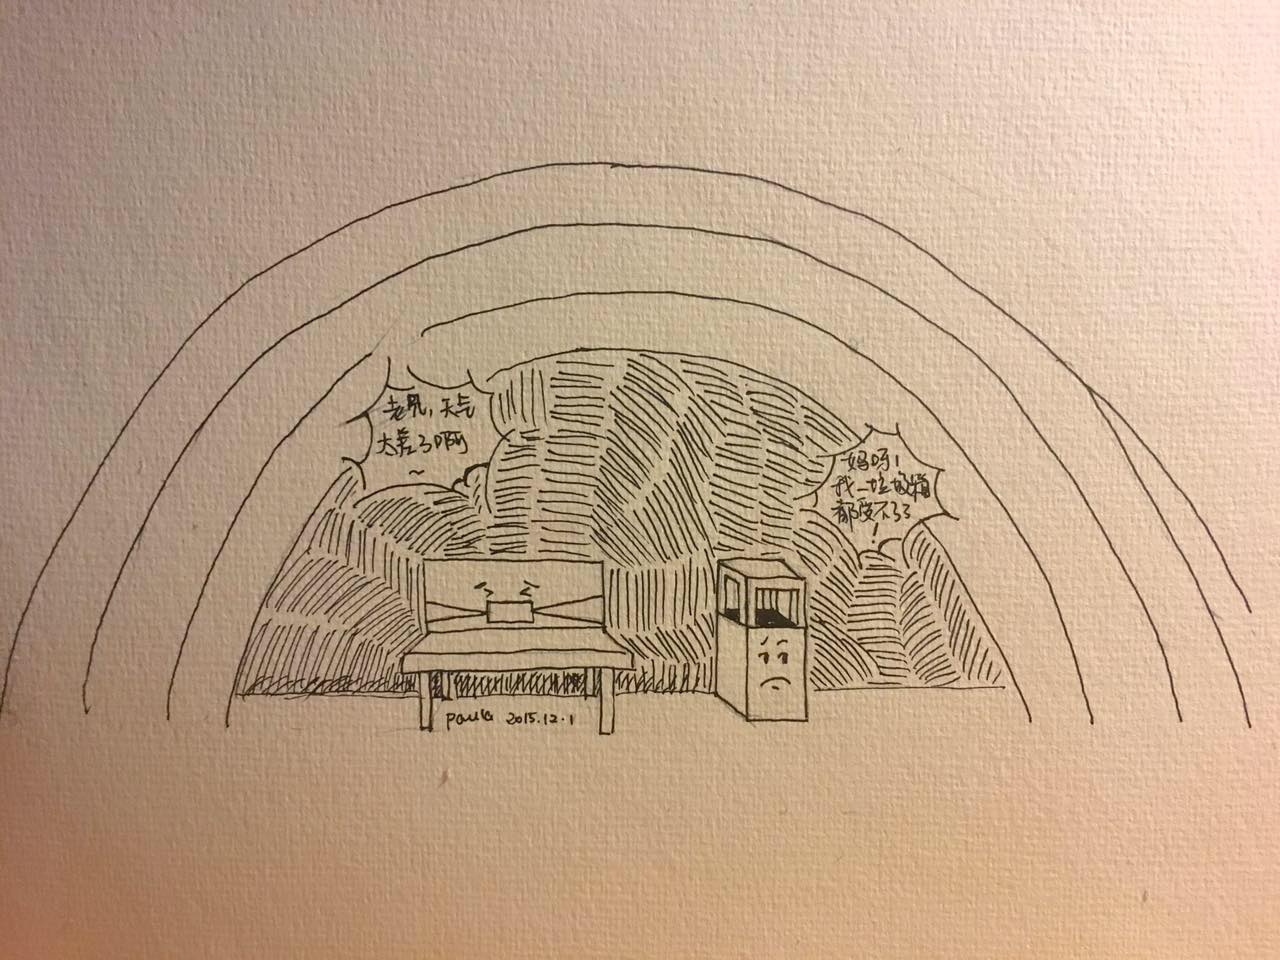 老兄，天气
大差了啊
～
妈呀！
我一垃圾箱
都受不了了
！
Paula 2015.12.1